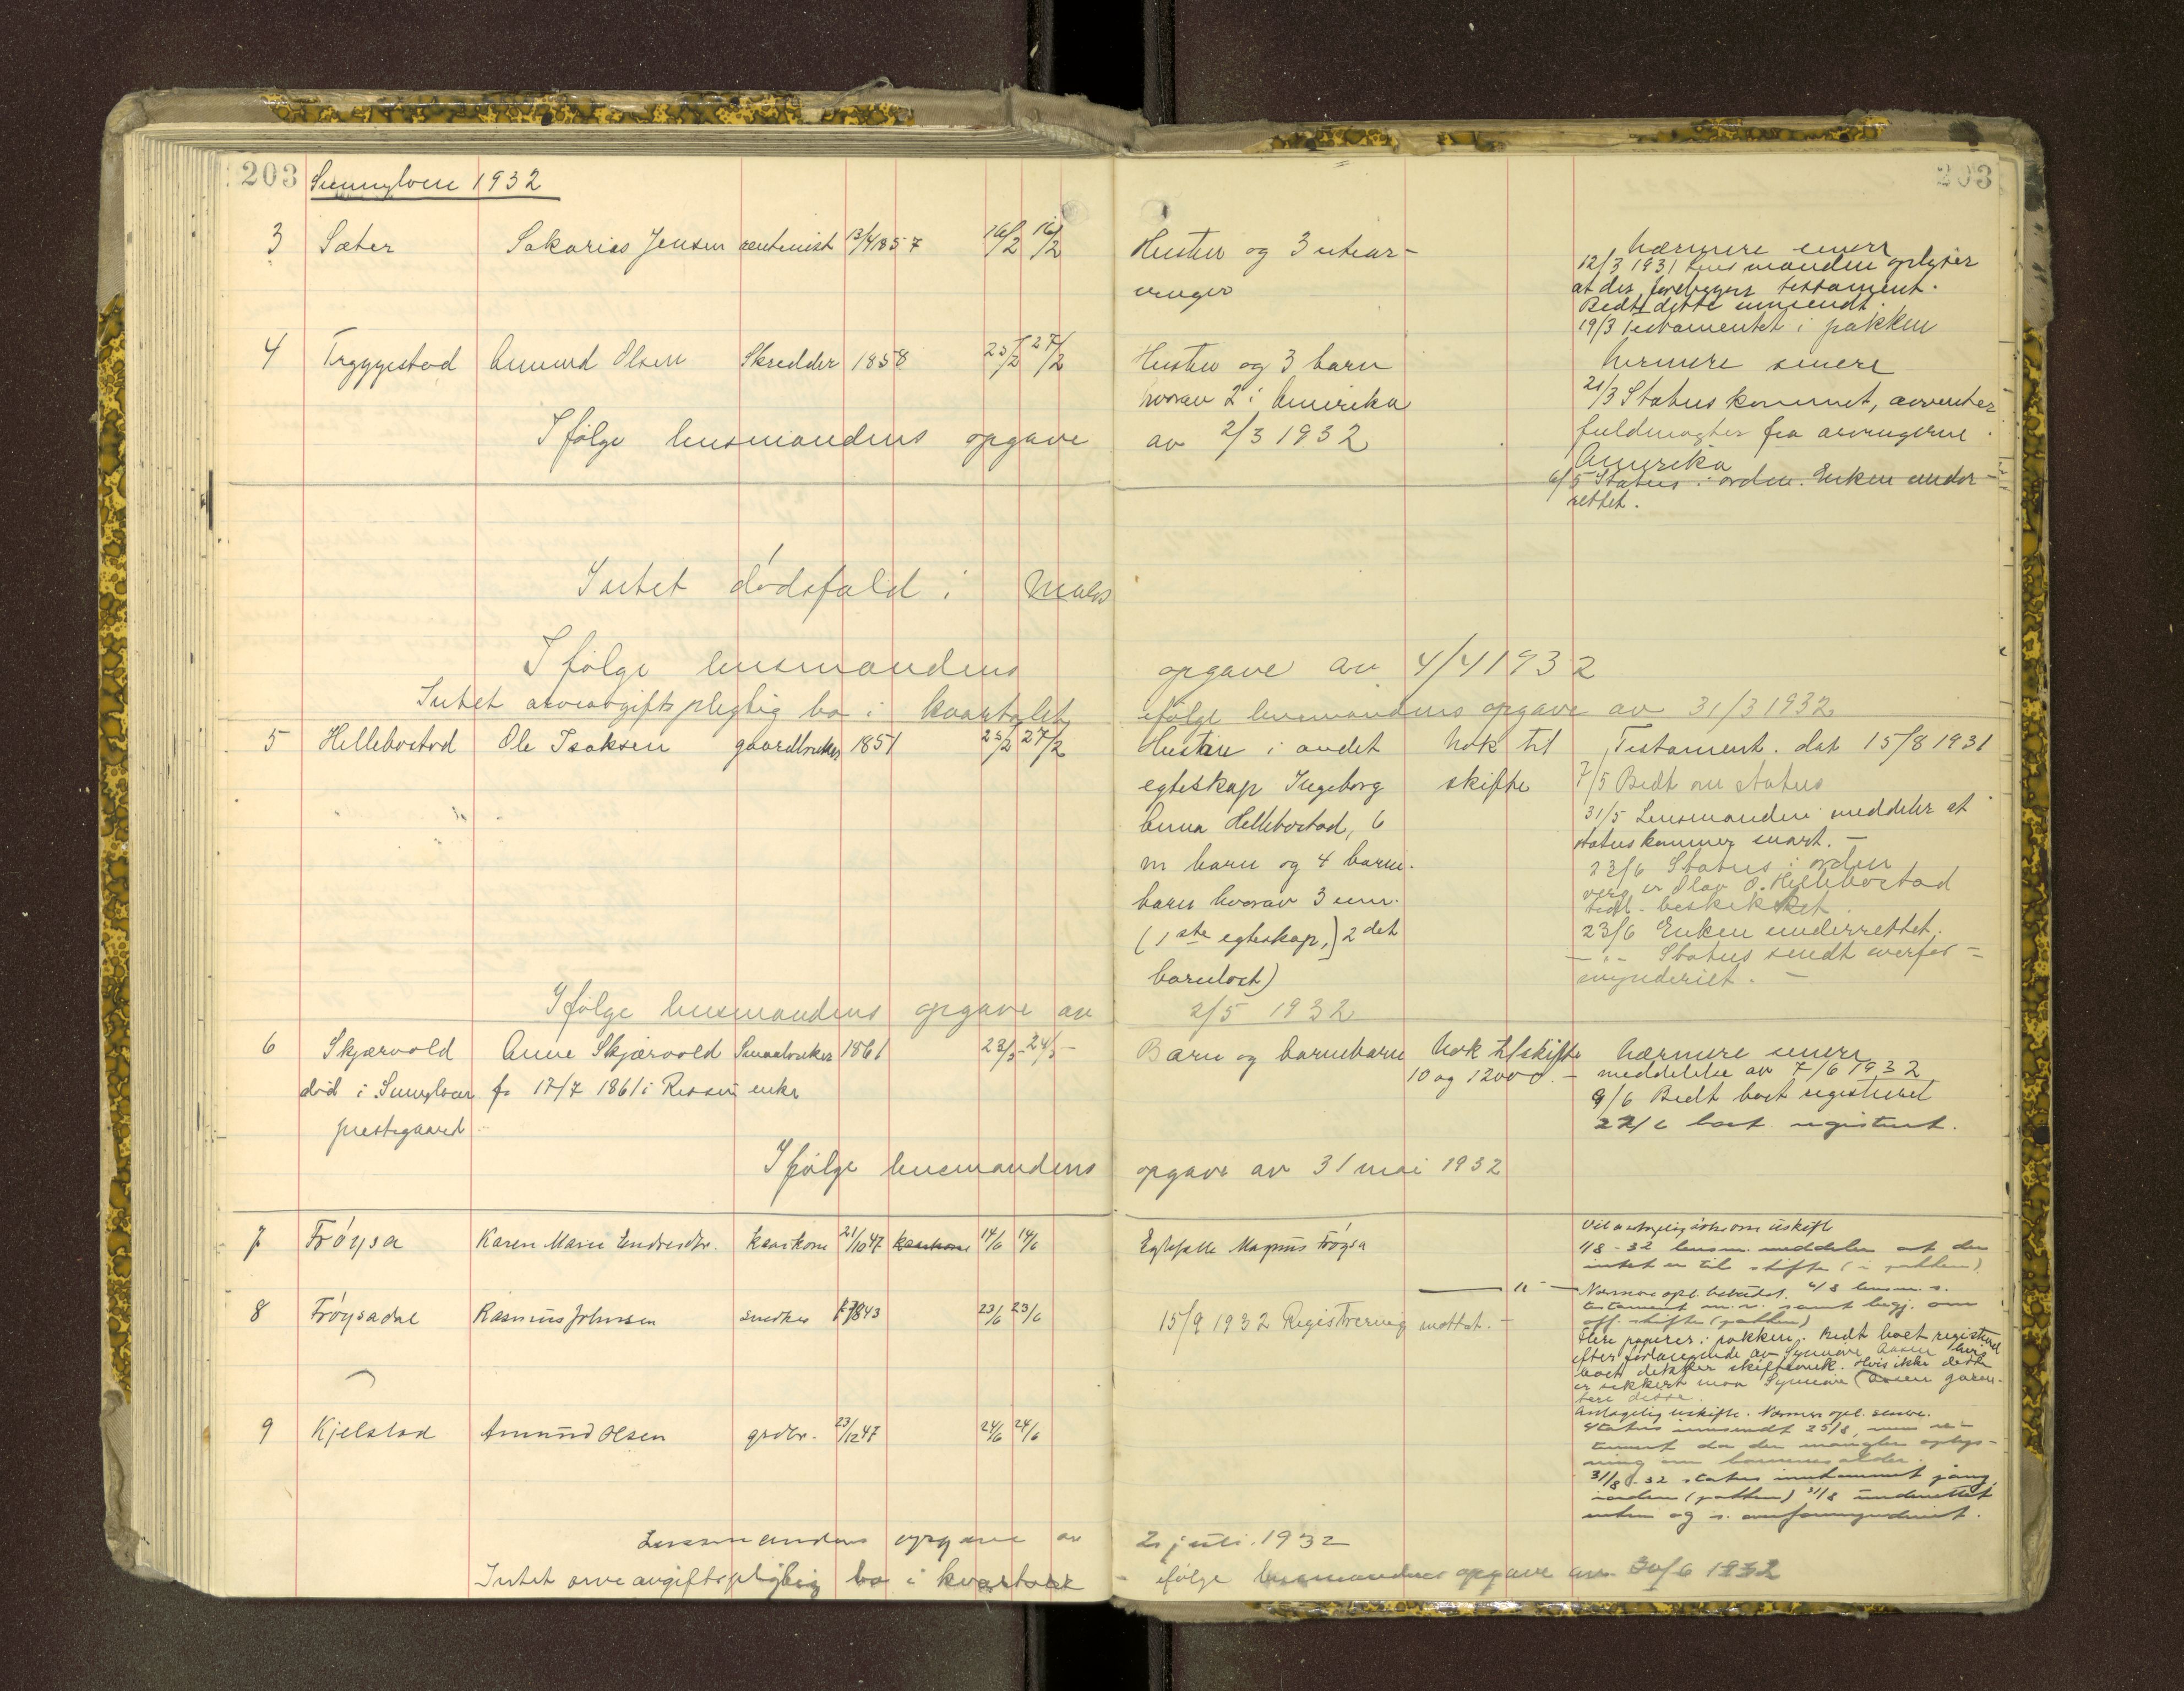 203 Sunnylven 1932 203
3 Sæter Sakarias Jensen rentenist 13/4 1857 16/2 16/2 Hustru og 3 utear-
vinger
nærmere senere
12/3 1931 Lensmanden oplyser
at der foreligger testament.
Bedt dette innsendt.
19/3 Testamentet i pakken
4 Tryggestad Amund Olsen Skredder 1858 25/2 27/2 Hustru og 3 barn
hvorav 2 i Amerika
nærmere senere
21/3 Status kommet, avventer
fuldmagter fra arvingerne i
Amerika
6/5 Status i orden. Enken under-
rettet.
Ifølge lensmandens opgave av 2/3 1932
Intet dødsfald i Mars
Ifølge lensmandens opgave av 4/4 1932
Intet arveavgiftspligtig bo i kvartalet ifølge lensmandens opgave av 31/3 1932
5 Hellebostad Ole Isaksen gaardbruker 1851 25/2 27/2 Hustru i andet nok til Testament. dat 15/8 1931
egteskap Ingeborg skifte
Anna Hellebostad, 6
m barn og 4 barne-
barn hvorav 3 um.
(1ste egteskap,) 2det
barnløst)
7/5 Bedt om status
31/5 Lensmanden meddeler at
status kommer snart. -
23/6 Status i orden
verg er Olav O. Hellebostad
beskikket.
23/6 Enken underrettet.
- " - Status sendt overfor-
mynderiet. -
Ifølge lensmandens opgave av 2/5 1932
6 Skjærvold Anne Skjærvold Smaabruker 1861 23/5 - 24/5 - Barn og barnebarn nok til skifte nærmere senere
død i Sunnylven f. 17/7 1861 i Rissa enke 10 og 12000. - meddelelse av 7/6 1932
prestegaard
9/6 Bedt boet registreret
22/6 boet registrert.
Ifølge lensmandens opgave av 31 mai 1932
7 Frøysa Karen Marie Endresdtr. kaarkone 21/10 47 kaarkone 14/6 14/6 Egtefælle Magnus Frøysa
Vil antagelig sitte som uskifte
1/8 - 32 lensm. meddeler at der
intet er til skifte (i pakken)
8 Frøysadal Rasmus Johnsen snedker 1843 23/6 23/6 — " — Nærmere opl. bebudet. 4/8 lensm. s.
15/9 1932 Registrering mottat. -
testament m.v. samt begj. om
off. skifte (pakken)
Flere papirer i pakken. Bedt boet registreret
efter forlangende av Synnøve Aasen hvis
boet dekker skifteomk. Hvis ikke dette
er sikkert maa Synnøve Aasen garan-
tere disse.
9 Kjelstad Amund Olsen grdbr. 23/12 47 24/6 24/6
Antagelig uskifte. Nærmere opl. senere.
Status innsendt 25/8, men re-
turnert da der mangler oplys-
ning om barnenes alder.
31/8 - 32 status innkommet
iorden (pakken) 31/8 underrettet
enken og s. overformynderiet.
Lensmandens opgave av 2. juli. 1932
Intet arveavgiftspligtig bo i kvartalet - ifølge lensmandens opgave av 30/6 1932